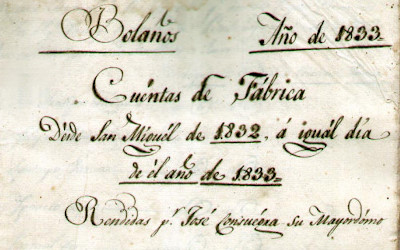 Bolaños Año de 1833
Cuentas de Fábrica
Désde San Miguél de 1832, á iguál día
de él año de 1833
Rendidas pr. José su Mayordómo